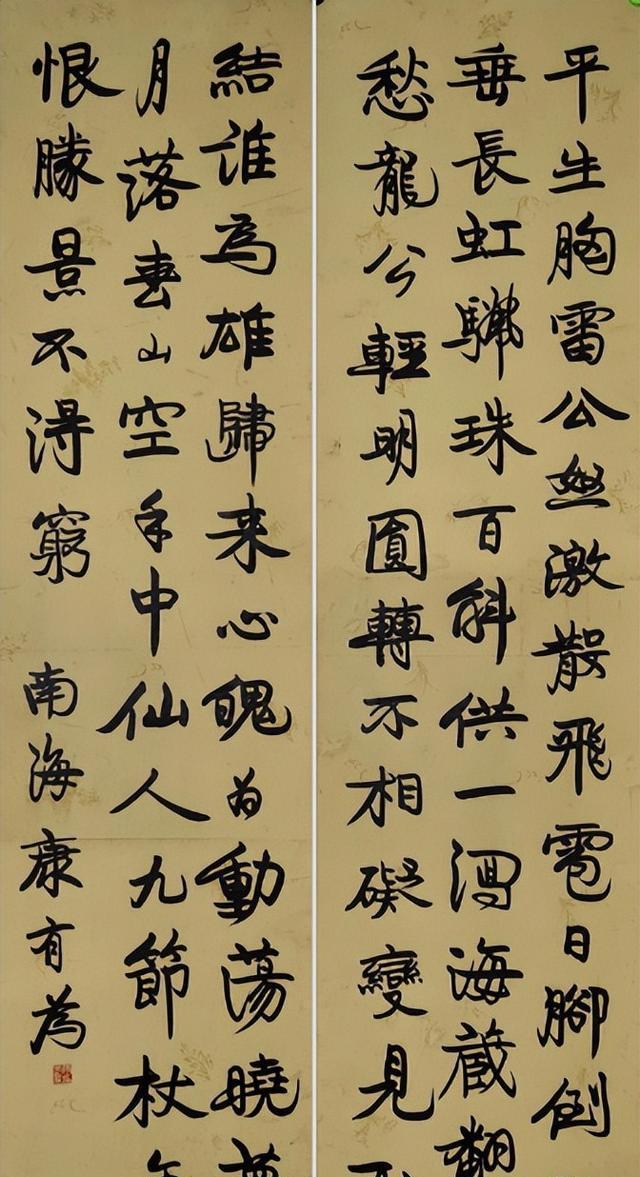 平生胸雷公怒激散飛雹日腳倒
垂長虹驪珠百斛供一瀉海藏翻
愁龍公輕明圓轉不相礙變見
結誰為雄歸来心魄為動蕩曉
月落春山空手中仙人九節杖
恨勝景不得窮
南海康有為